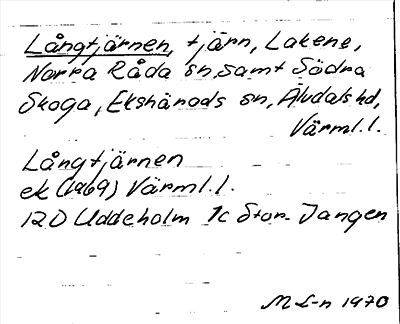 Långtjärnen, tjärn, Lakene,
Norra Råda sn, samt Södra
Skoga, Ekshärads sn, Älvdals hd,
Värml. l.
Långtjärnen
ek (1969) Värml. l.
12D Uddeholm 1c Stor-Jangen
M L-n 1970